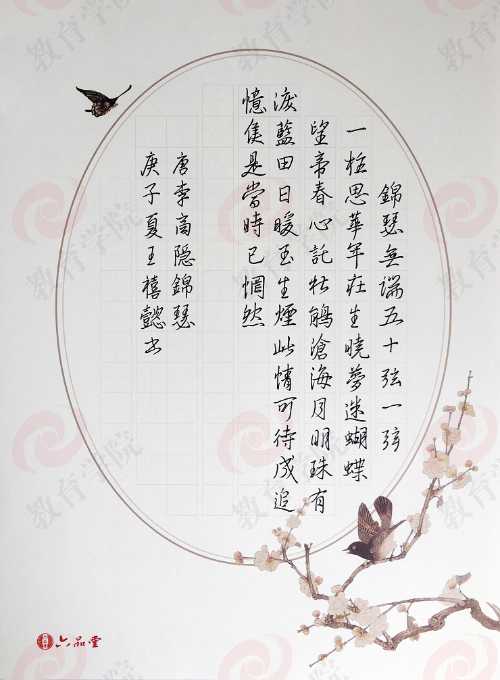 錦瑟無端五十弦一弦
一柱思華年莊生曉夢迷蝴蝶
望帝春心託杜鵑滄海月明珠有
淚藍田日暖玉生煙此情可待成追
憶隻是當時已惘然
唐李商隐錦瑟
庚子夏王禧懿书
六品堂
教育学院